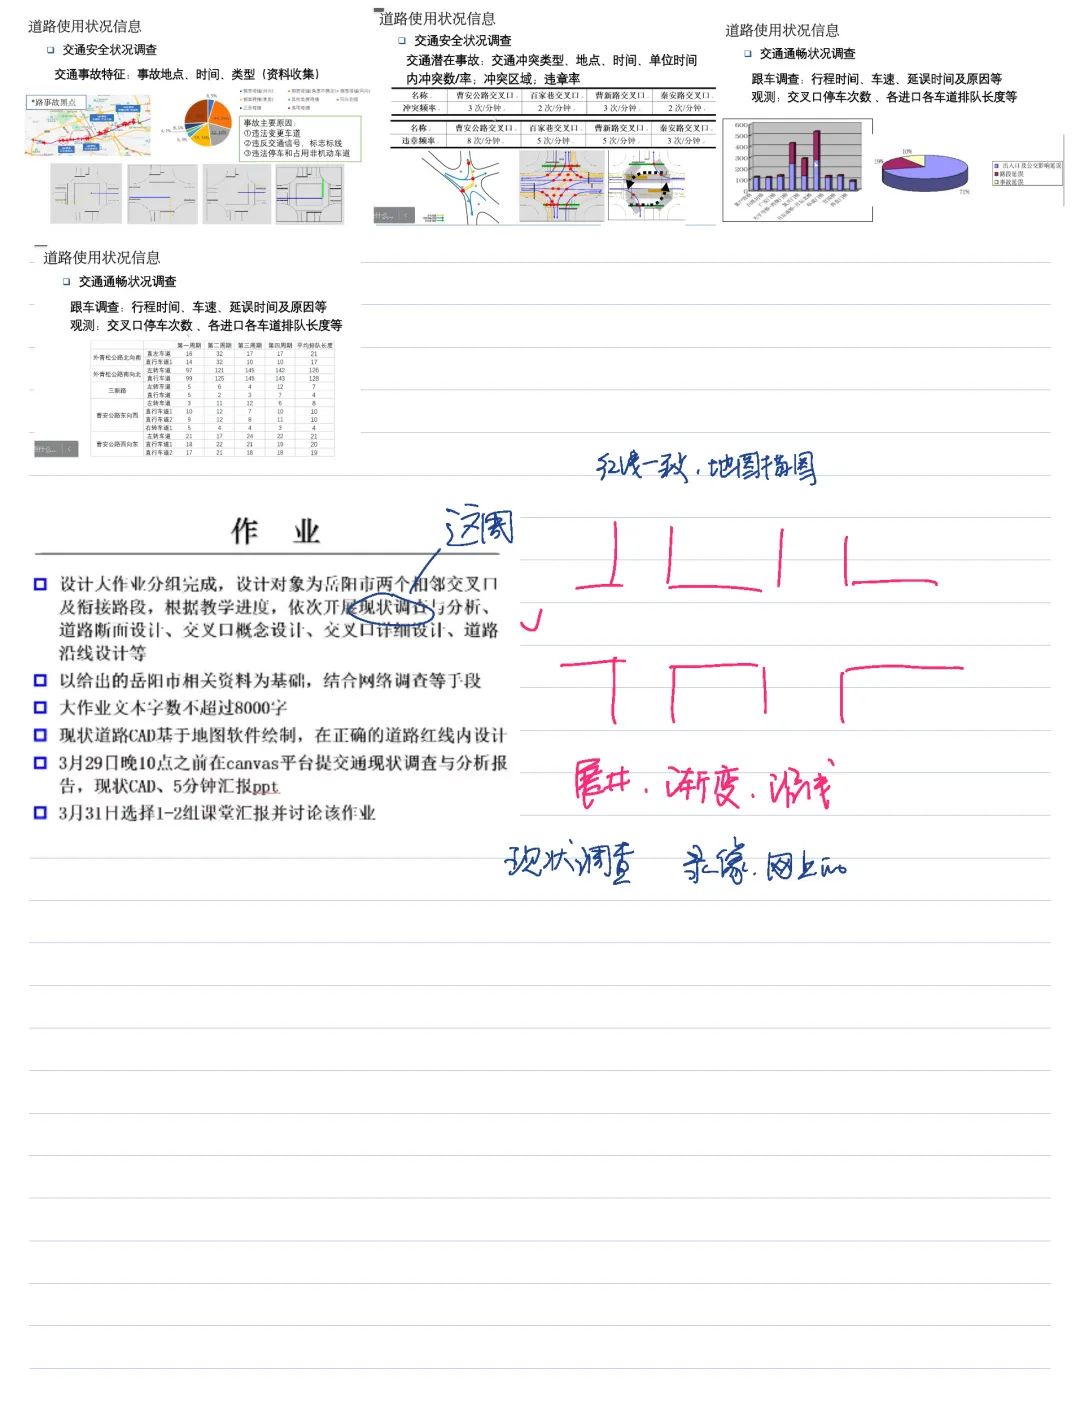 道路使用状况信息
交通安全状况调查
交通事故特征：事故地点、时间、类型（资料收集）
*路事故黑点
6.5%
事故主要原因：
①违法变更车道
②违反交通信号、标志标线
③违法停车和占用非机动车道
道路使用状况信息
交通安全状况调查
交通潜在事故：交通冲突类型、地点、时间、单位时间
内冲突数/率；冲突区域；违章率
名称 曹安公路交叉口 百家巷交叉口 曹新路交叉口 秦安路交叉口
冲突频率 3 次/分钟 2 次/分钟 3 次/分钟 2 次/分钟
名称 曹安公路交叉口 百家巷交叉口 曹新路交叉口 秦安路交叉口
违章频率 8 次/分钟 5 次/分钟 5 次/分钟 3 次/分钟
道路使用状况信息
交通通畅状况调查
跟车调查：行程时间、车速、延误时间及原因等
观测：交叉口停车次数 、各进口各车道排队长度等
600
500
400
300
200
100
0
10%
19%
71%
出入口及公交影响延误
路段延误
事故延误
道路使用状况信息
交通通畅状况调查
跟车调查：行程时间、车速、延误时间及原因等
观测：交叉口停车次数 、各进口各车道排队长度等
第一周期 第二周期 第三周期 第四周期 平均排队长度
外青松公路北向南 直左车道 16 32 17 17 21
直行车道1 14 32 10 10 17
外青松公路南向北 左转车道 97 121 145 142 126
直行车道 99 125 145 143 128
三新路 左转车道 5 6 4 12 7
直行车道 5 2 3 7 4
曹安公路东向西 左转车道 3 11 12 6 8
直行车道1 10 12 7 10 10
直行车道2 9 12 8 11 10
右转车道1 5 4 4 3 4
曹安公路西向东 左转车道 21 17 24 22 21
直行车道1 18 22 21 19 20
直行车道2 17 21 18 18 19
红线一致，地图描图
作 业
这周
设计大作业分组完成，设计对象为岳阳市两个相邻交叉口
及衔接路段，根据教学进度，依次开展现状调查与分析、
道路断面设计、交叉口概念设计、交叉口详细设计、道路
沿线设计等
以给出的岳阳市相关资料为基础，结合网络调查等手段
大作业文本字数不超过8000字
现状道路CAD基于地图软件绘制，在正确的道路红线内设计
3月29日晚10点之前在canvas平台提交通现状调查与分析报
告，现状CAD、5分钟汇报ppt
3月31日选择1-2组课堂汇报并讨论该作业
渐变、沿线
现状调查 录像、网上的